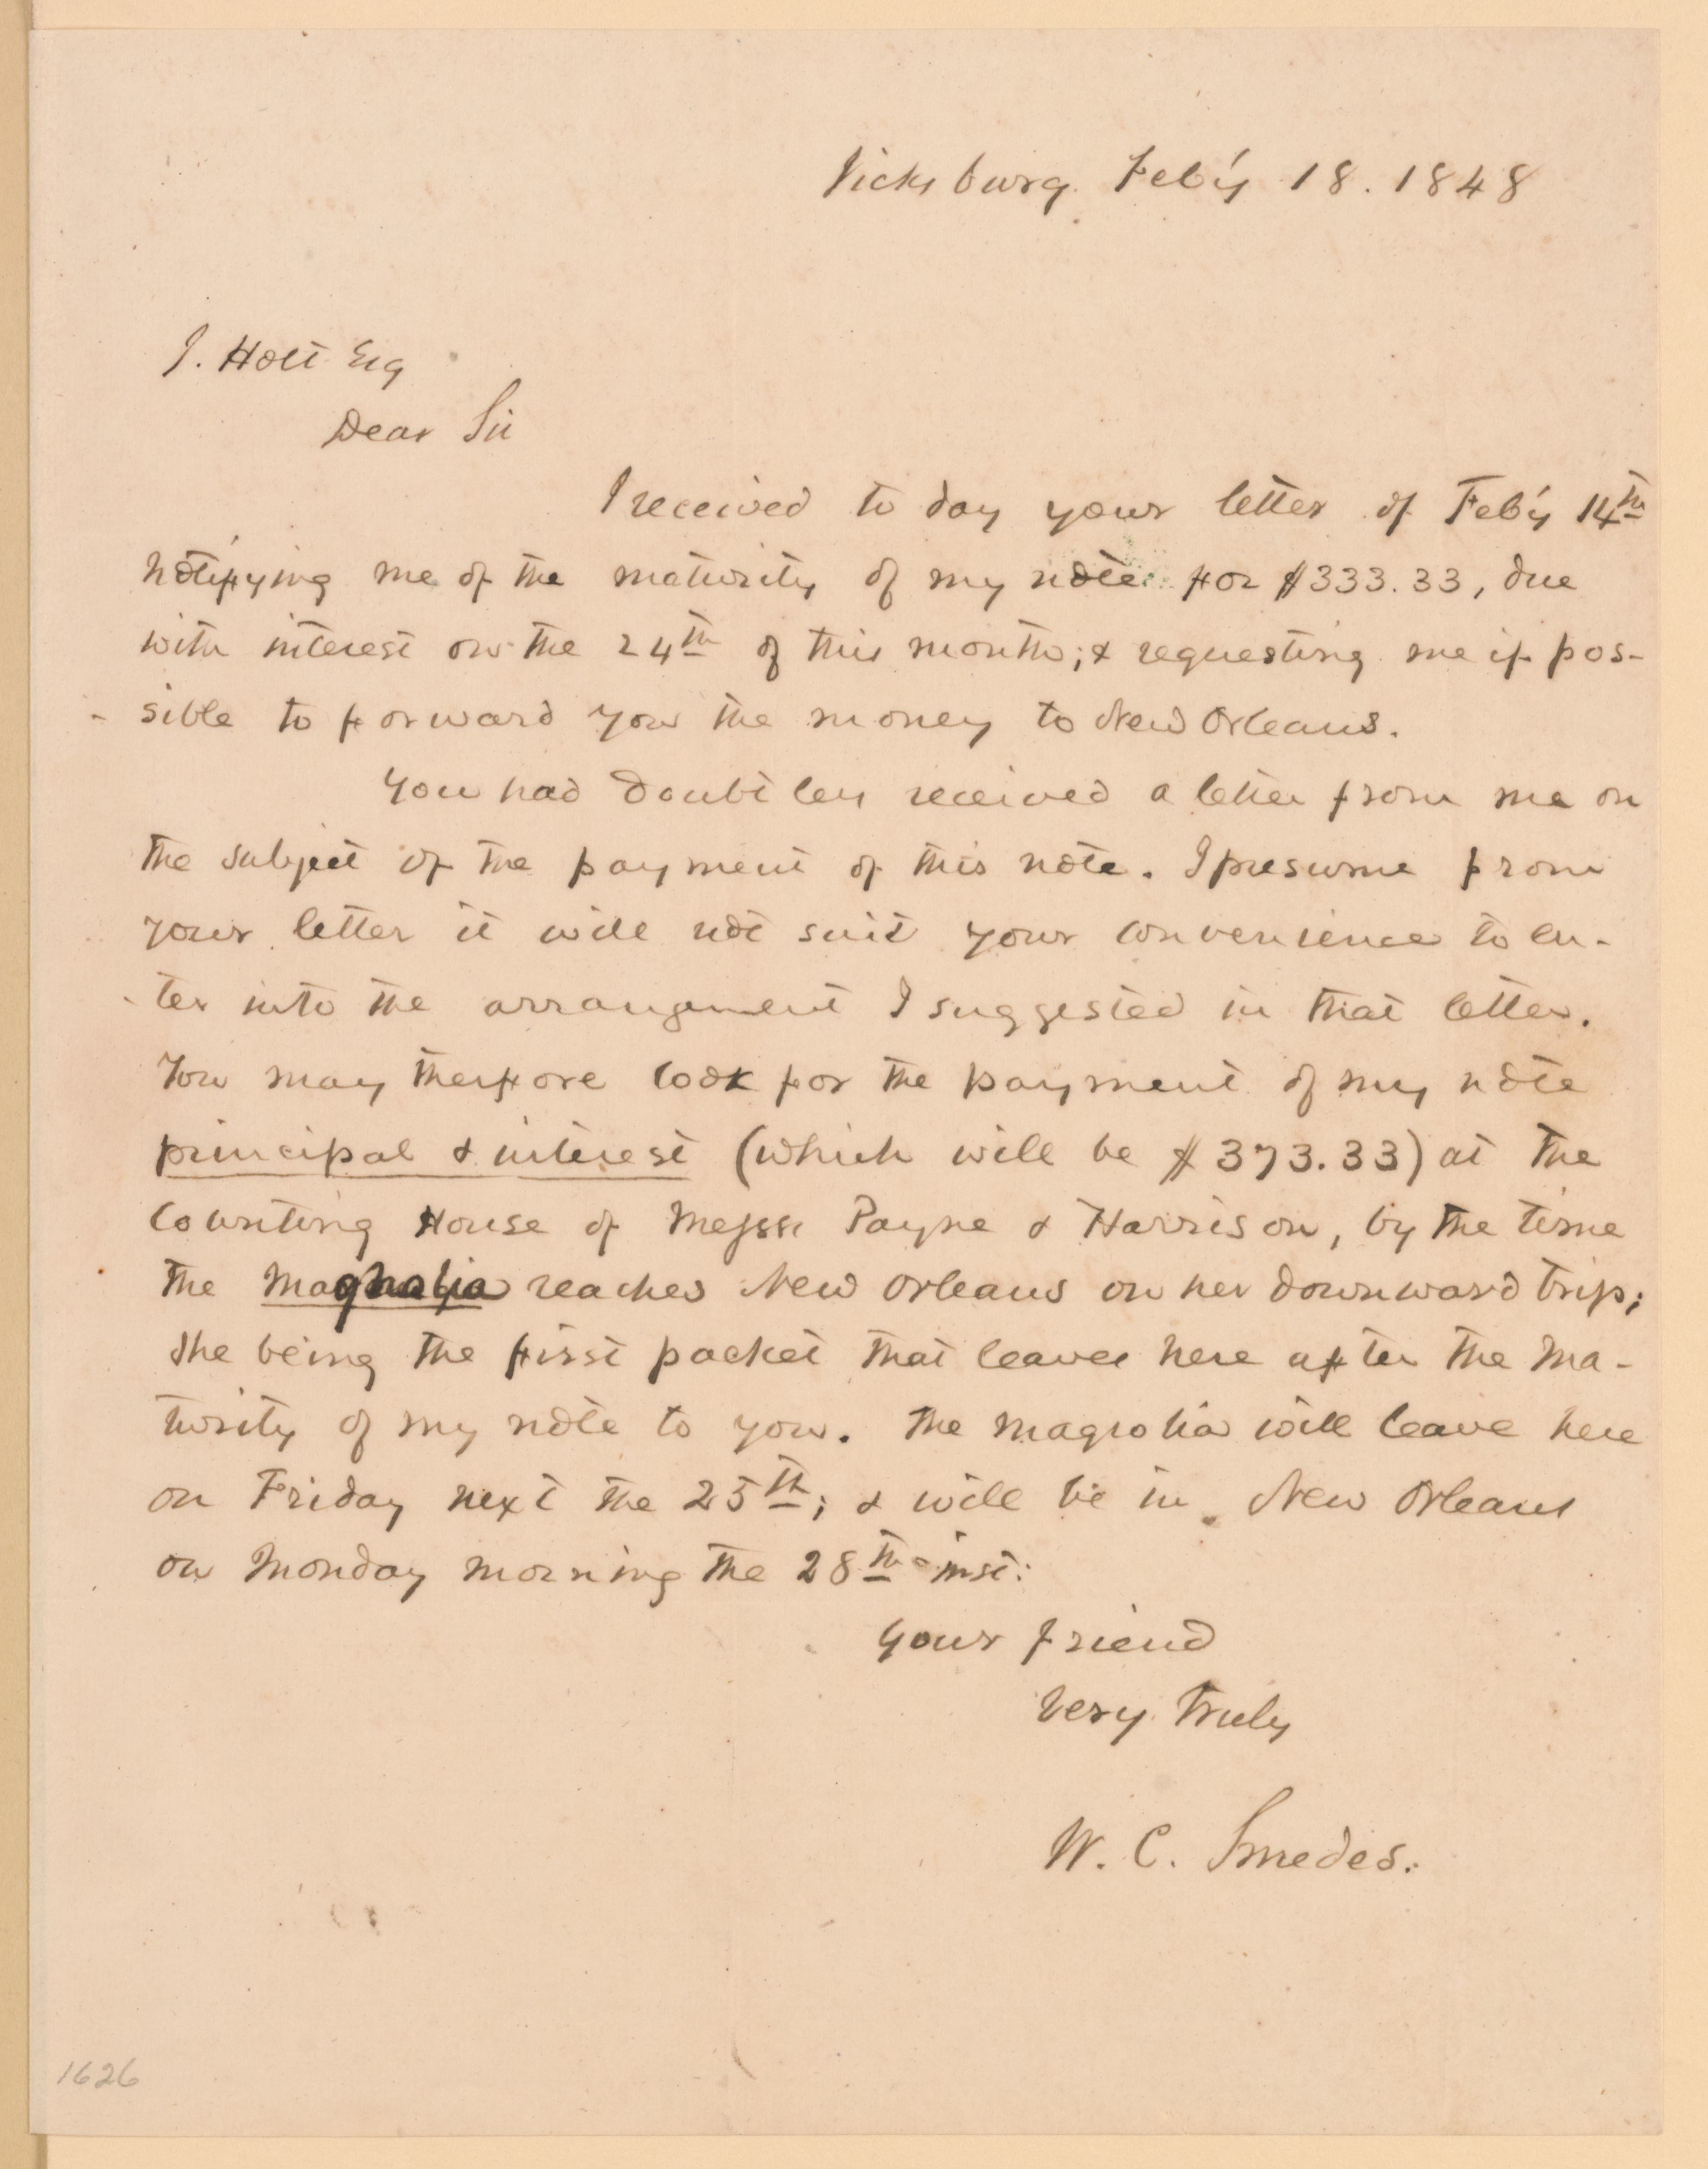 Vicksburg Feb'y 18. 1848
J. Holt Esq
Dear Sir
I received to day your letter of Feb'y 14th
notifying me of the maturity of my note for $333.33, due
with interest on the 24th of this month; & requesting me if pos-
- sible to forward you the money to New Orleans.
You had doubtless received a letter from me on
the subject of the payment of this note. I presume from
your letter it will not suit your convenience to en-
- ter into the arrangment I suggested in that letter.
You may therfore look for the payment of my note
principal & interest (which will be $373.33) at the
Counting House of Messrs Payne & Harrison, by the time
the Magnolia reaches New Orleans on her downward trip;
she being the first packet that leaves here after the ma-
turity of my note to you. The Magnolia will leave here
on Friday next the 25th; & will be in New Orleans
on Monday morning the 28th inst:
Your friend
Very truly
W. C. Smedes.
1626